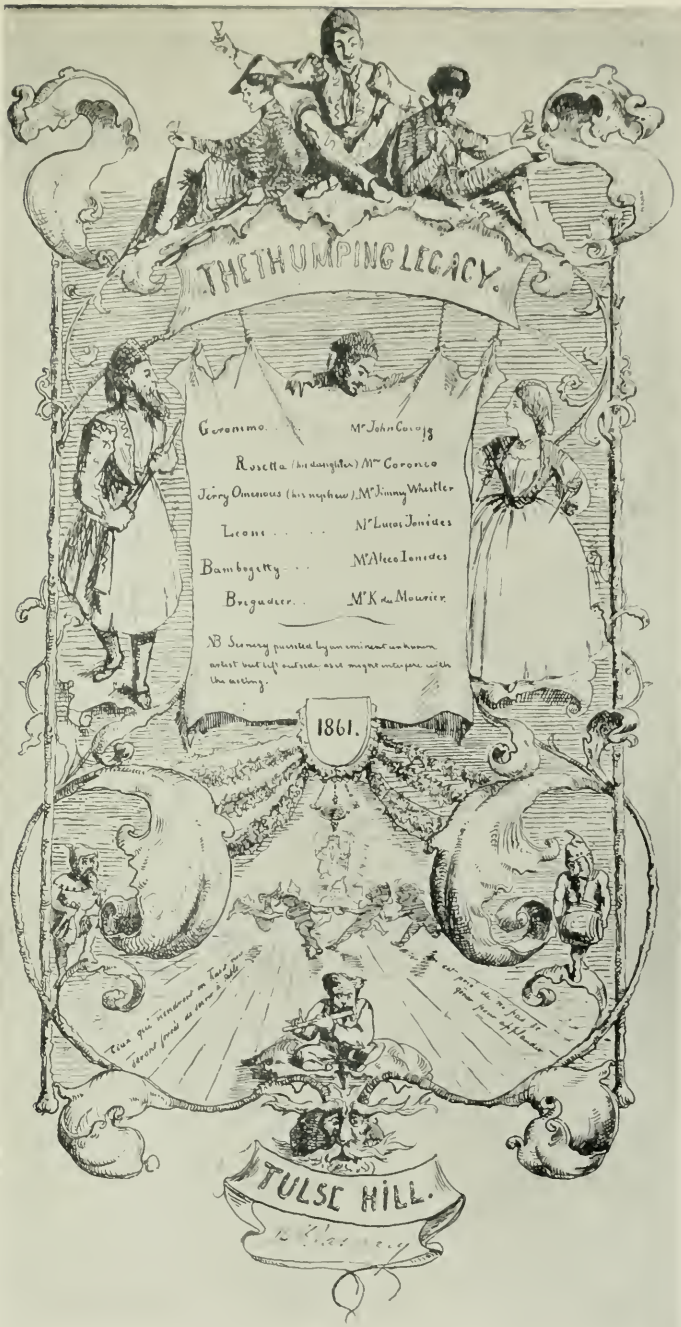 THE THUMPING LEGACY.
Geronimo..... Mr John Coronio
Rosetta (his daughter) Mrs Coronio
Jerry Ominous (his nephew). Mr Jimmy Whistler
Leoni..... Mr Lucas Ionides
Bambogetty... Mr Aleco Ionides
Brigadier... Mr K du Maurier.
NB Scenery painted by an eminent unknown
artist but left outside as it might interfere with
the acting.
1861.
Ceux qui viendront en tard
seront forcés de
On est prié de ne pas se
gêner pour applaudir
TULSE HILL.